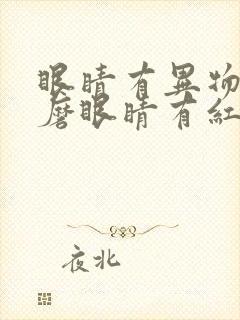 眼睛有異物
磨眼睛有紅
夜北